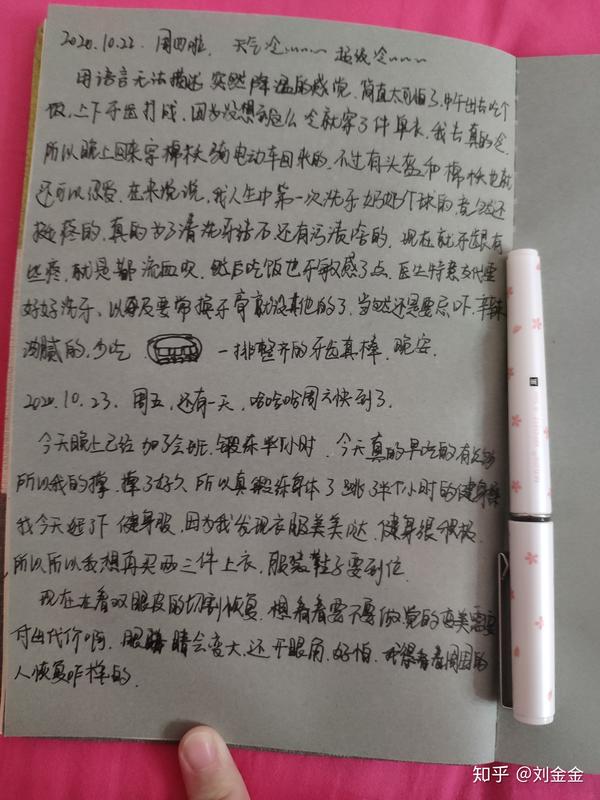 2020.10.22. 周四啦. 天气冷~~~~ 超级冷~~~~
用语言无法描述突然降温的感觉, 简直太可怕了, 中午出去吃个
饭, 上下牙齿打战, 因为没想到这么冷就穿了件单衣, 我去真的冷
所以晚上回来穿棉袄骑电动车回来的, 不过有头盔和棉袄也就
还可以很爱. 在来说说, 我人生中第一次洗牙好好个球的, 竟然还
挺疼的, 真的为了清洗牙结石还有污渍啥的, 现在就牙龈有
些疼, 就是都流血哎. 然后吃饭也不敏感了点. 医生特意交代要
好好洗牙, 以及要常换牙膏就没其他的了. 当然还是要忌口, 辛辣
油腻的, 少吃. 一排整齐的牙齿真棒, 晚安.
2020.10.23. 周五, 还有一天, 哈哈哈周六快到了.
今天晚上已经加了会班, 锻炼半小时. 今天真的早吃的有点多
所以我的撑, 撑了好久 所以真锻炼身体了跳了半个小时的健身操
我今天逛了下健身服, 因为我发现衣服美美哒, 健身很积极.
所以所以我想再买两三件上衣, 服装鞋子要到位.
现在在看双眼皮的切割恢复, 想看看需不要做, 觉的变美需要
付出代价啊. 眼睛会变大, 还开眼角, 好怕. 我得看看周围的
人恢复咋样的.
知乎 @刘金金